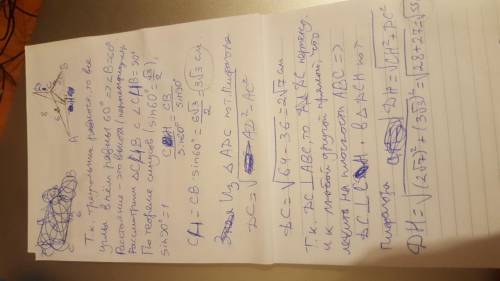 Т.к. треугольник равност., то все
углы в нём равны 60° => ∠B=60°
Расстояние - это высота (перпендикуляр)
Рассмотрим ΔCHB с ∠CHB=90°
По теореме синусов (sin60°=√3/2,
sin90°=1
CH/sin60° = CB/sin90°
CH=CB·sin60°=6√3/2=3√3 см.
Из ΔADC по т.Пифагора
DC=√AD²-AC²
DC=√64-36=2√7 см
Т.к. DC⊥ABC, то DC перпенд.
и к любой другой прямой, что
лежит на плоскости ABC =>
DC⊥CH. в ΔDCH по т
Пифагора DH=√CH²+DC²
DH=√(2√7)²+(3√3)²=√28+27=√55